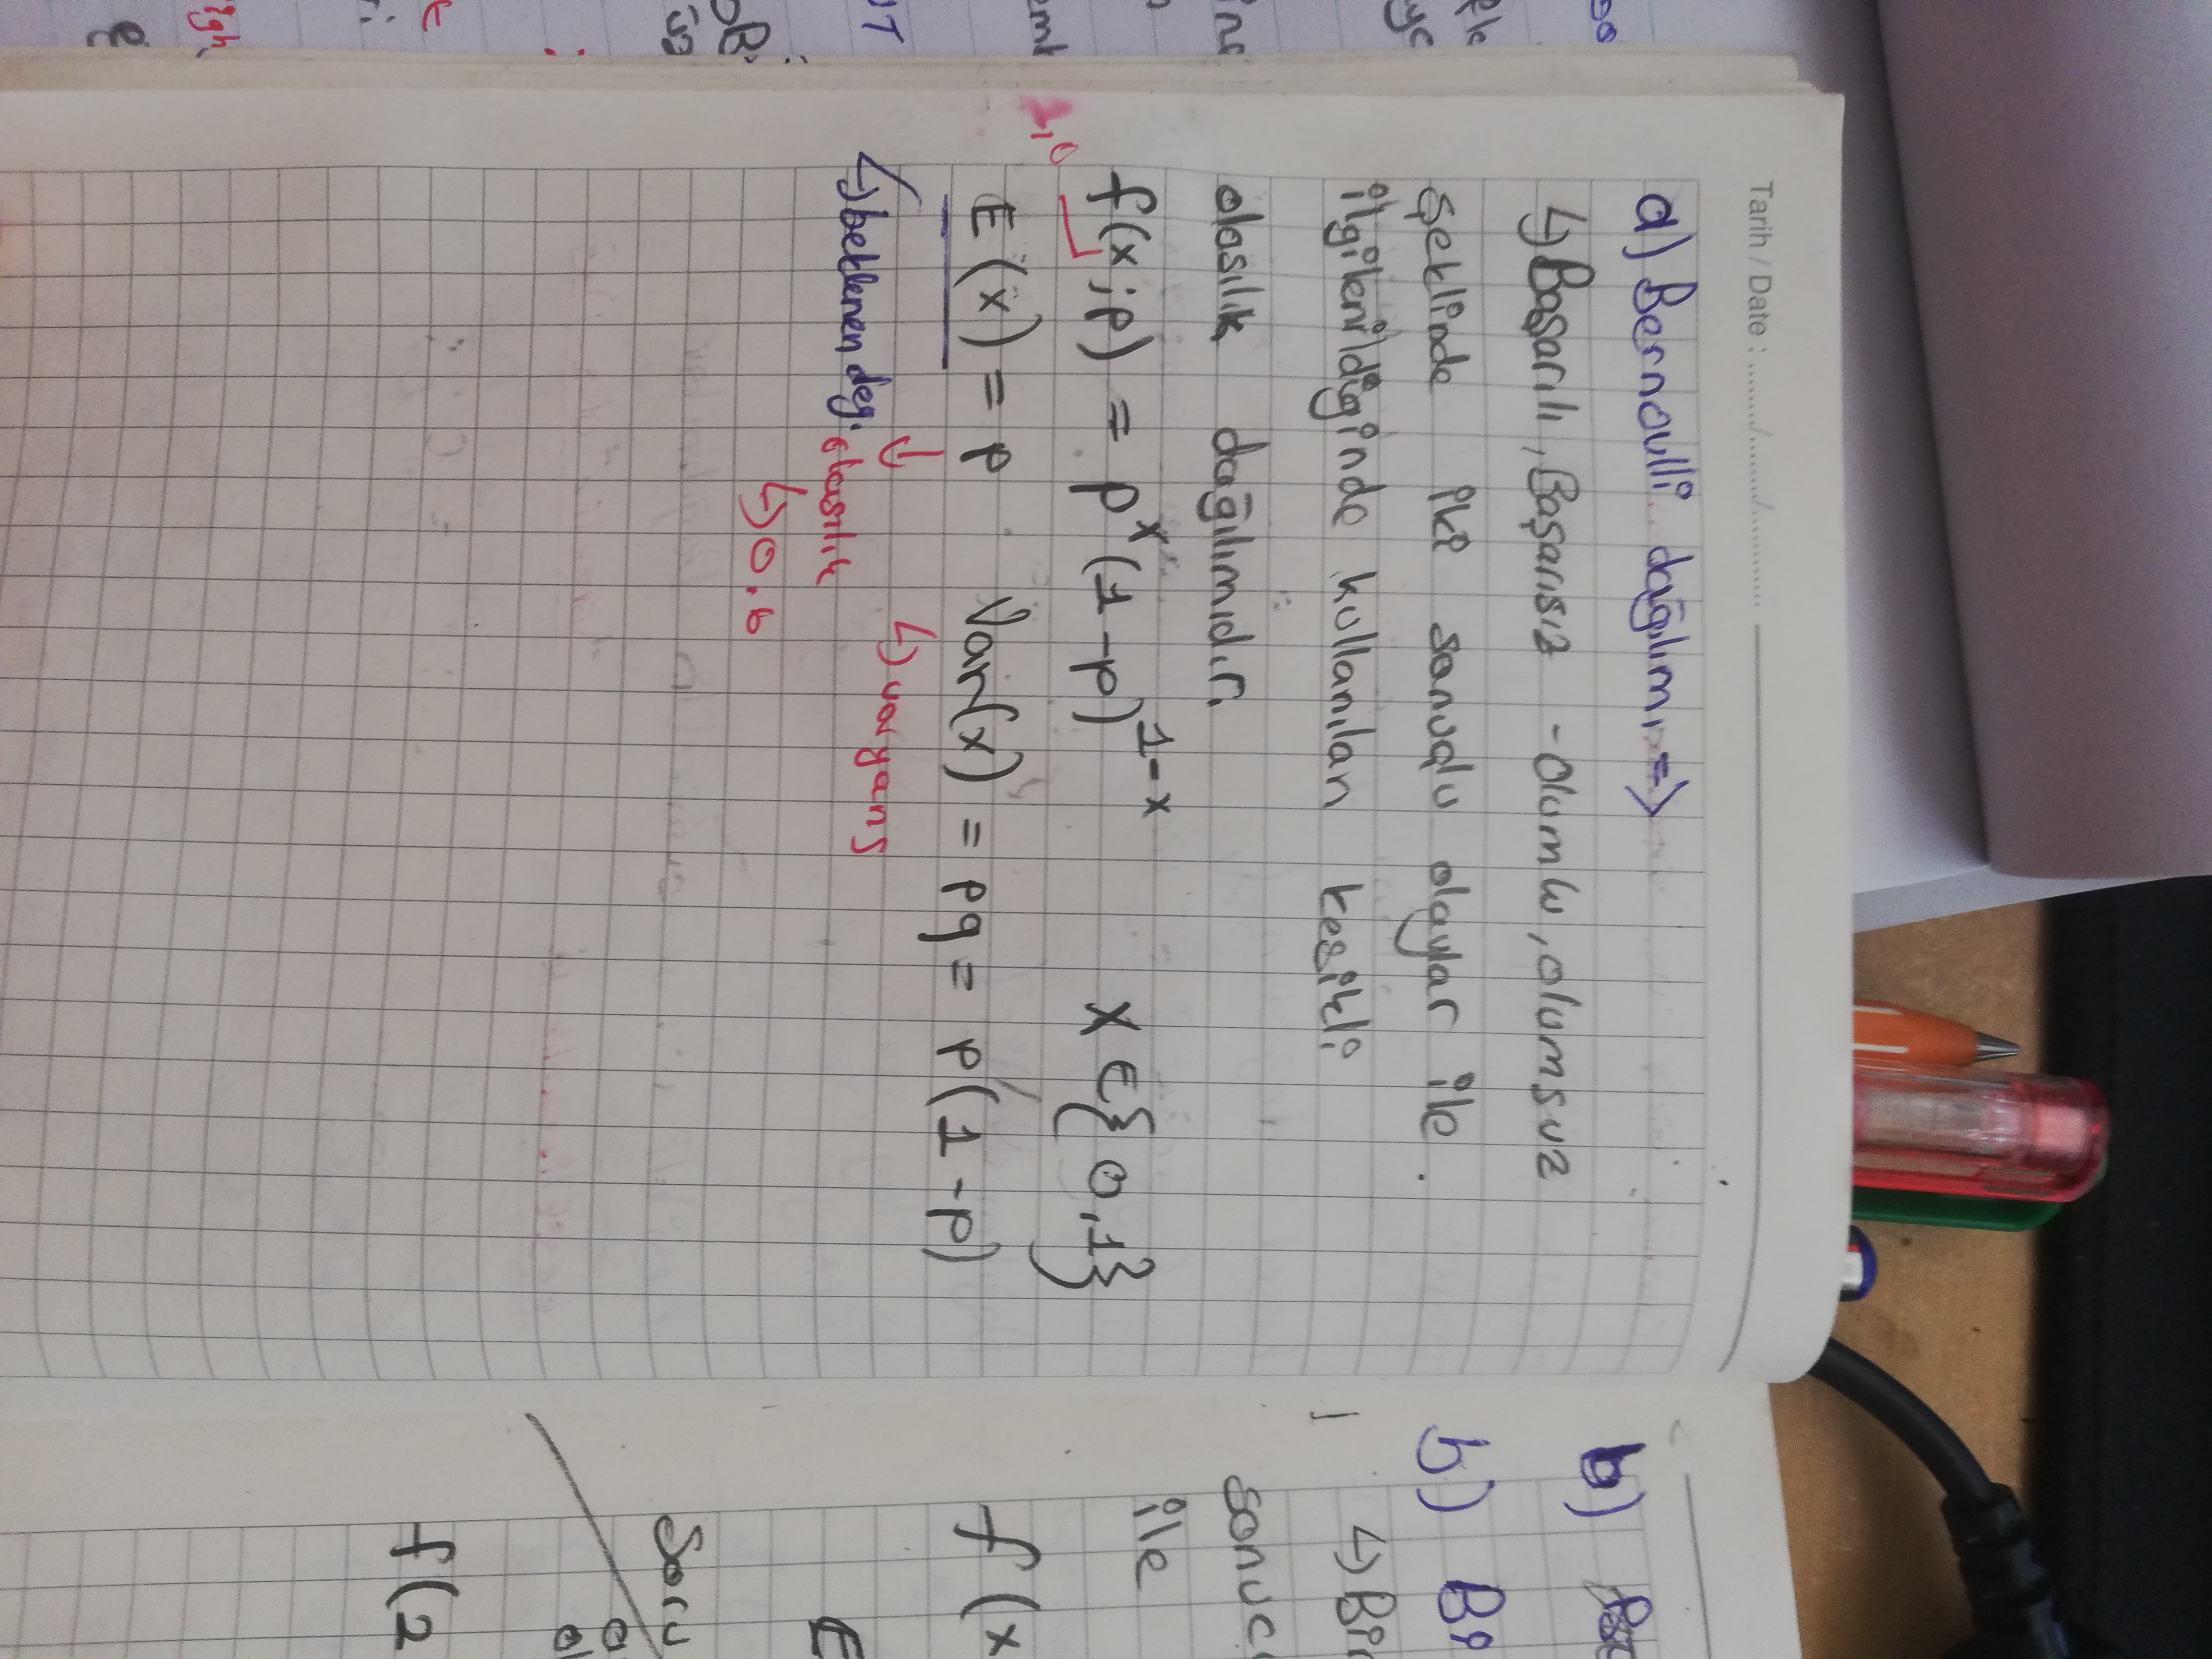 Tarih / Date : ......../......../............
a) Bernoulli dağılımı =>
↳ Başarılı, Başarısız - Olumlu, olumsuz
şeklinde iki sonuçlu olaylar ile.
ilgilenildiginde kullanılan kesikli
olasılık dağılımıdır.
f(x;p) = p^x (1-p)^1-x X ∈ {0,1}
1,0
E(x) = p Var(x) = pq = p(1-p)
↳ beklenen değ. ↓ olasılık ↳ varyans
↳ 0.6
b)
b) Bi
↳ Bir
sonuc
ile
f(x
E
Soru
f(2